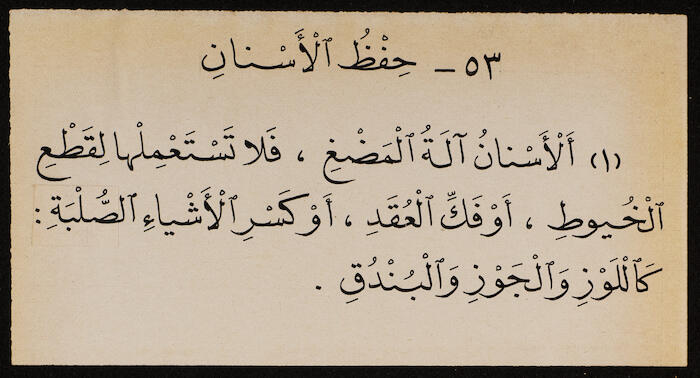 ٥٣ – حِفْظُ ٱلْأَسْنانِ
(١) أَلْأَسْنانُ آلَةُ ٱلْمَضْغِ ، فَلا تَسْتَعْمِلْها لِقَطْعِ
ٱلْخُيوطِ ، أَوْ فَكِّ ٱلْعُقَدِ ، أَوْ كَسْرِ ٱلْأَشْياءِ ٱلصُّلْبَةِ :
كَٱللَّوْزِ وَٱلْجَوْزِ وَٱلْبُنْدُقِ .